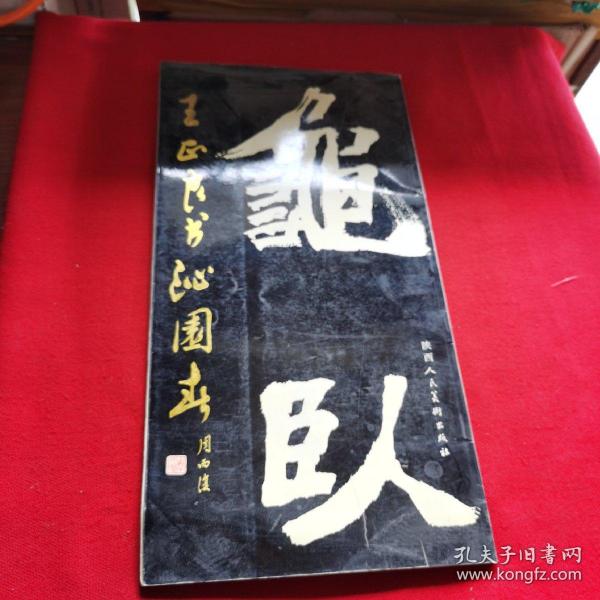 王正良书沁园春
周而復
龜臥
陕西人民美術出版社
孔夫子旧書网
www.kongfz.com